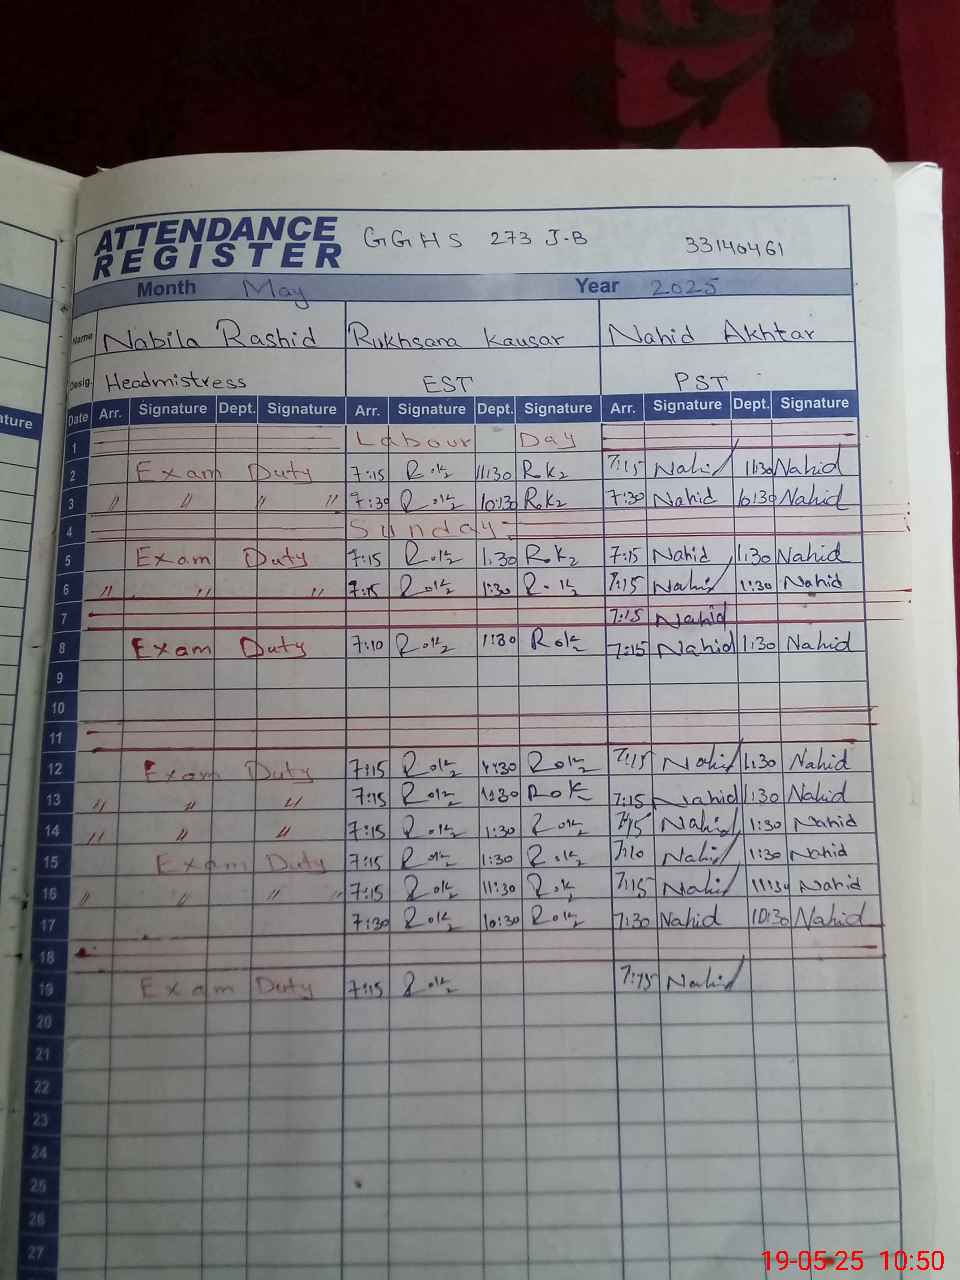 ATTENDANCE REGISTER GGHS 273 J-B 33140461
Month May Year 2025
Name Nabila Rashid Rukhsana Kausar Nahid Akhtar
Desig. Headmistress EST PST
Date Arr. Signature Dept. Signature Arr. Signature Dept. Signature Arr. Signature Dept. Signature
ature
1 Labour Day
2 Exam Duty 7:15 11:30 7:15 Nahid 11:30 Nahid
3 〃 〃 〃 〃 7:30 10:30 7:30 Nahid 10:30 Nahid
4 Sunday
5 Exam Duty 7:15 1:30 7:15 Nahid 1:30 Nahid
6 〃 〃 〃 7:15 1:30 7:15 Nahid 1:30 Nahid
7 7:15 Nahid
8 Exam Duty 7:10 1:30 7:15 Nahid 1:30 Nahid
9
10
11
12 Exam Duty 7:15 7:15 Nahid 1:30 Nahid
13 〃 〃 〃 7:15 1:30 7:15 Nahid 1:30 Nahid
14 〃 〃 〃 7:15 1:30 7:15 Nahid 1:30 Nahid
15 Exam Duty 7:15 1:30 7:10 Nahid 1:30 Nahid
16 〃 〃 〃 〃 7:15 11:30 7:15 Nahid Nahid
17 7:30 10:30 7:30 Nahid 10:30 Nahid
18
19 Exam Duty 7:15 7:15 Nahid
20
21
22
23
24
25
26
27
19-05-25 10:50